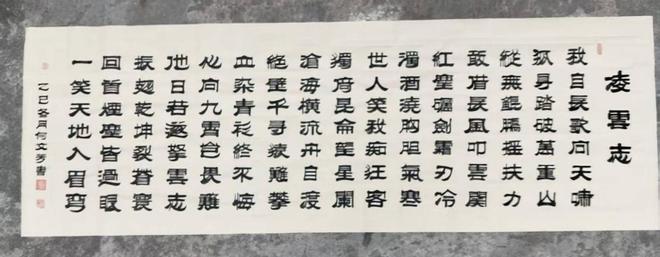 凌雲志
我自長歌向天嘯
孤身踏破萬重山
縱無鯤鵬摇扶力
敢借長風叩雲關
紅塵礪劍霜刃冷
濁酒澆胸胆氣寒
世人笑我痴狂客
獨倚昆侖望星闌
滄海橫流舟自渡
絕壁千尋猿難攀
血染青衫終不悔
心向九霄豈畏難
他日若遂拏雲志
振翅乾坤裂蒼寰
回首煙塵皆過眼
一笑天地入眉彎
乙巳冬月何文芳書